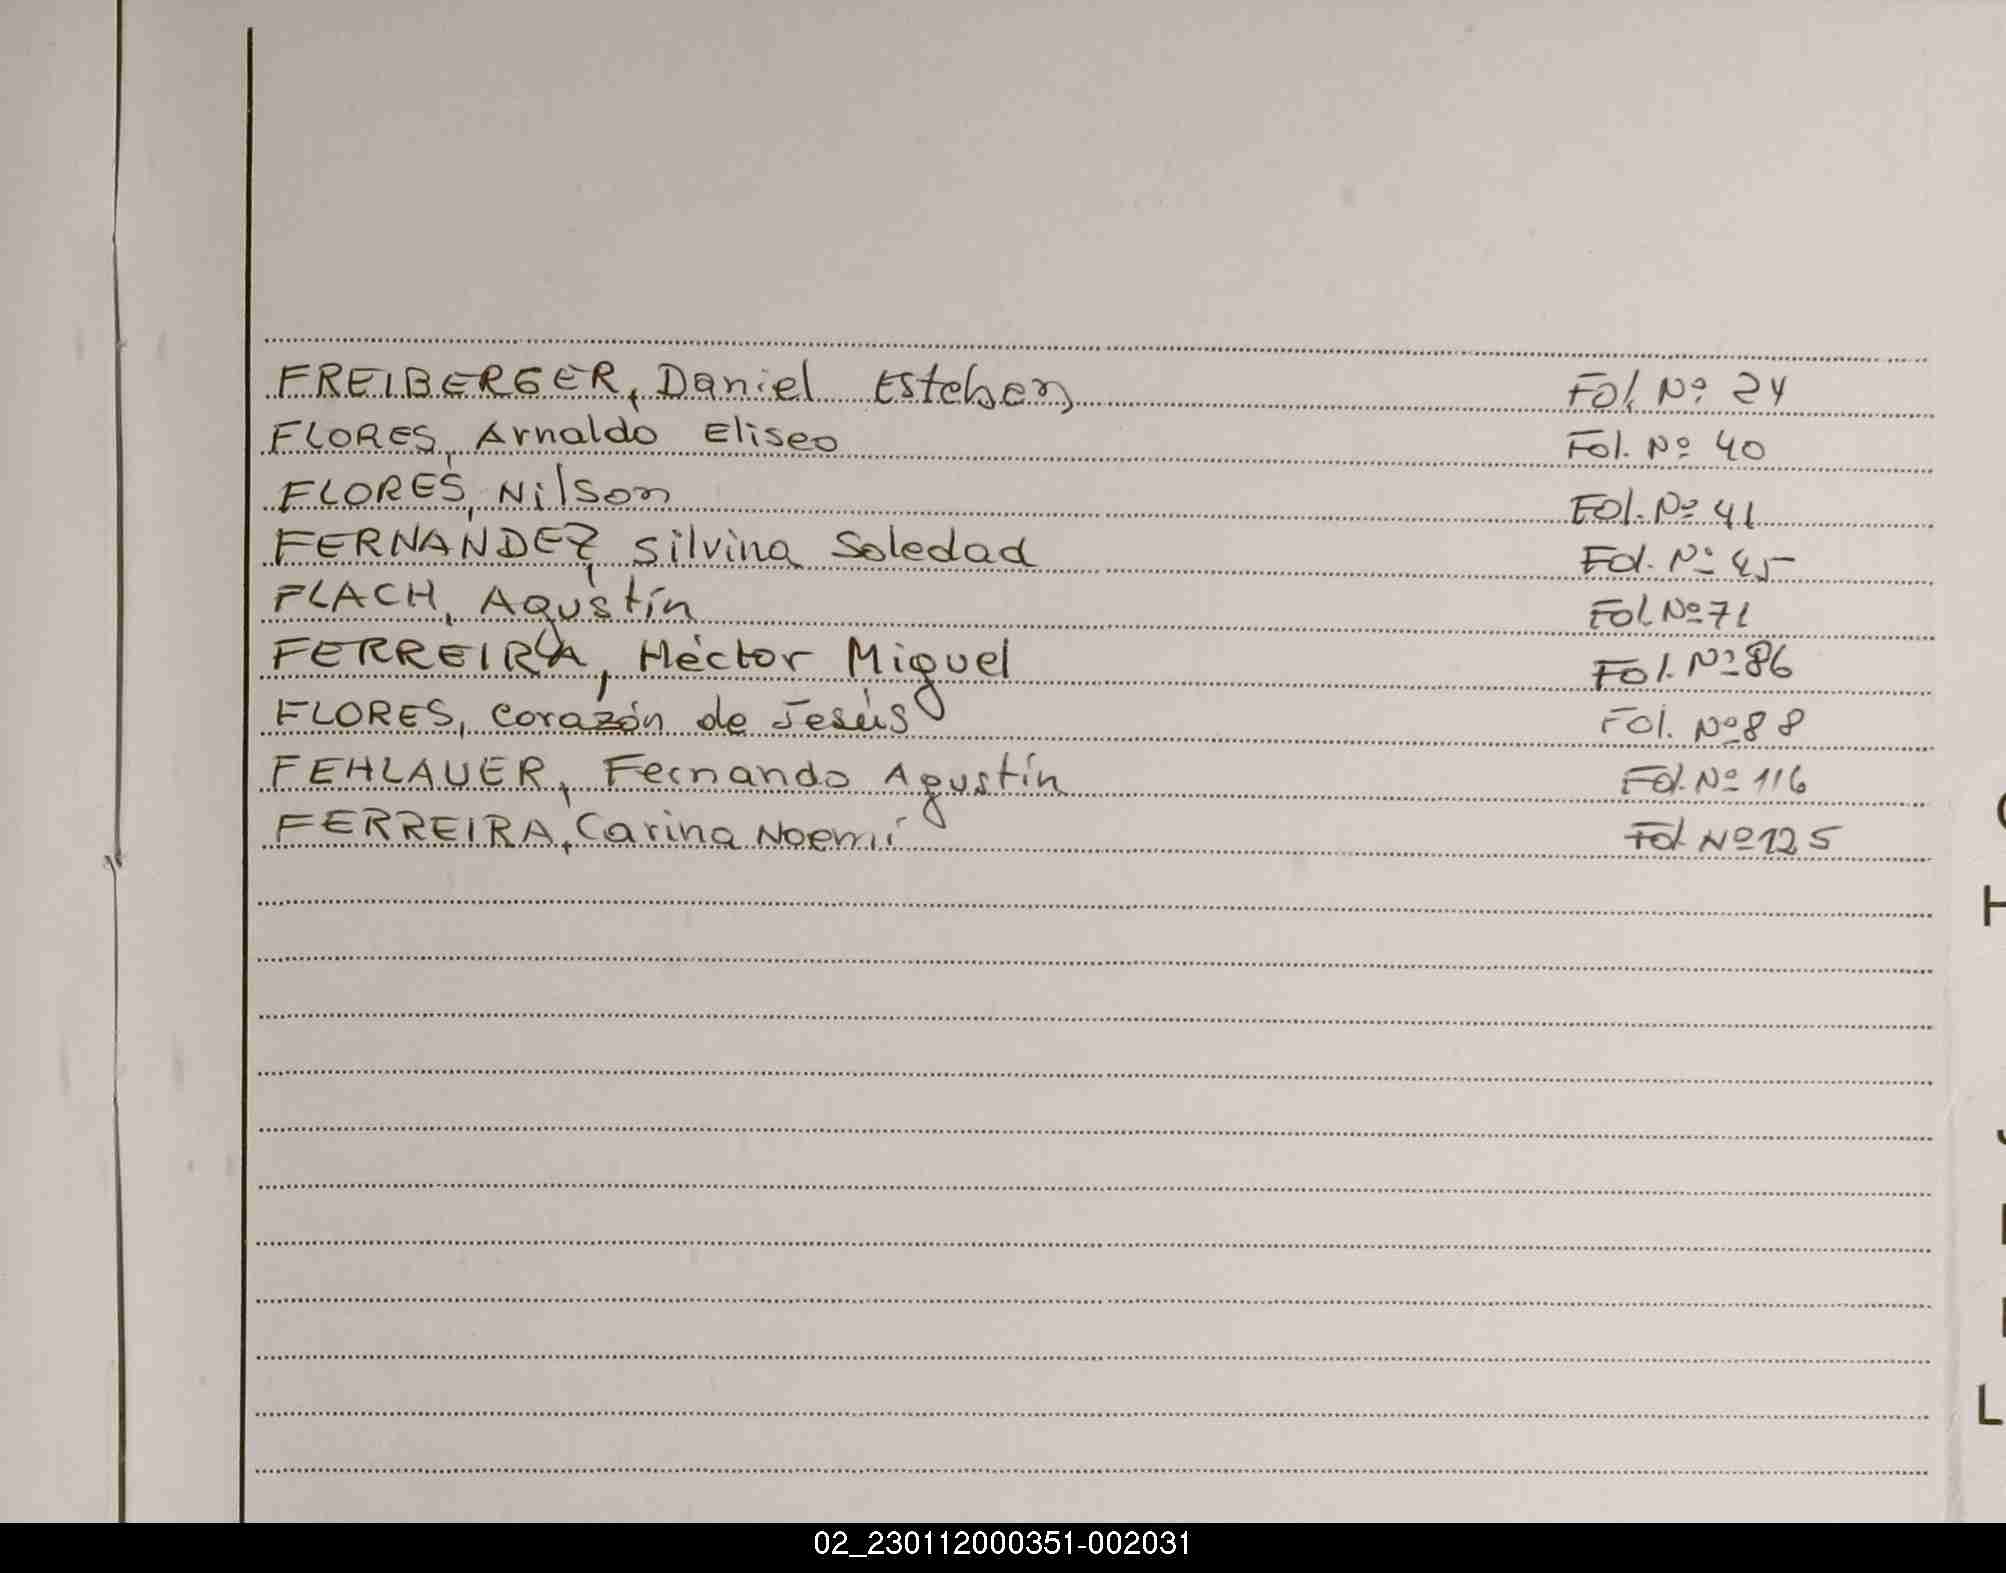 FREIBERGER, Daniel Esteban Fol. Nº 24
FLORES, Arnaldo Eliseo Fol. Nº 40
FLORES, Nilson Fol. Nº 41
FERNANDEZ, Silvina Soledad Fol. Nº 45
FLACH, Agustín Fol Nº 71
FERREIRA, Héctor Miguel Fol. Nº 86
FLORES, Corazón de Jesús Fol. Nº 88
FEHLAUER, Fernando Agustín Fol. Nº 116
FERREIRA, Carina Noemí Fol Nº 125
H
L
02_230112000351-002031